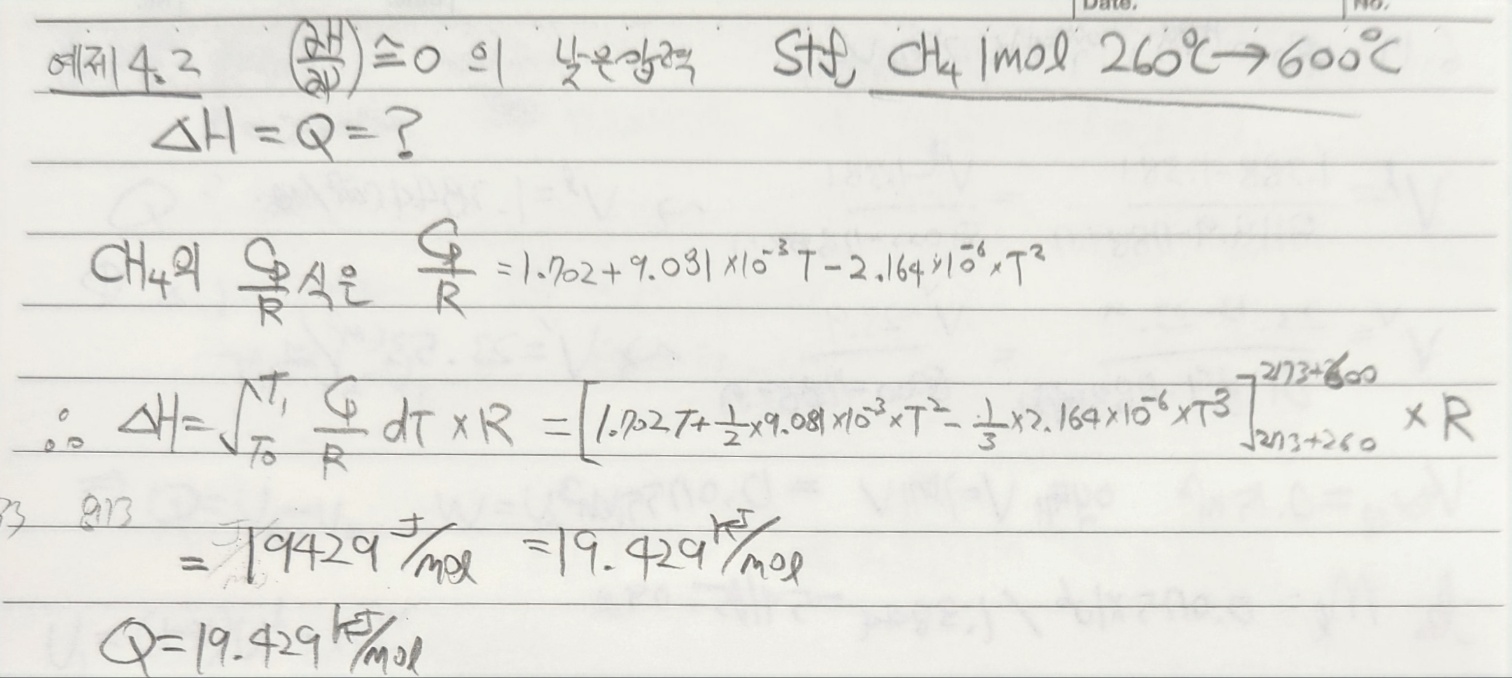 Date. No.
예제 4.2 (∂H/∂P) ≅ 0 의 낮은압력 Stf, CH₄ 1mol 260°C → 600°C
ΔH = Q = ?
CH₄의 Cp/R 식은 Cp/R = 1.702 + 9.081 × 10⁻³ T - 2.164 × 10⁻⁶ × T²
∴ ΔH = ∫_{T₀}^{T₁} Cp/R dT × R = [1.702T + 1/2 × 9.081 × 10⁻³ × T² - 1/3 × 2.164 × 10⁻⁶ × T³]_{273+260}^{273+600} × R
873
= 19429 J/mol = 19.429 kJ/mol
Q = 19.429 kJ/mol